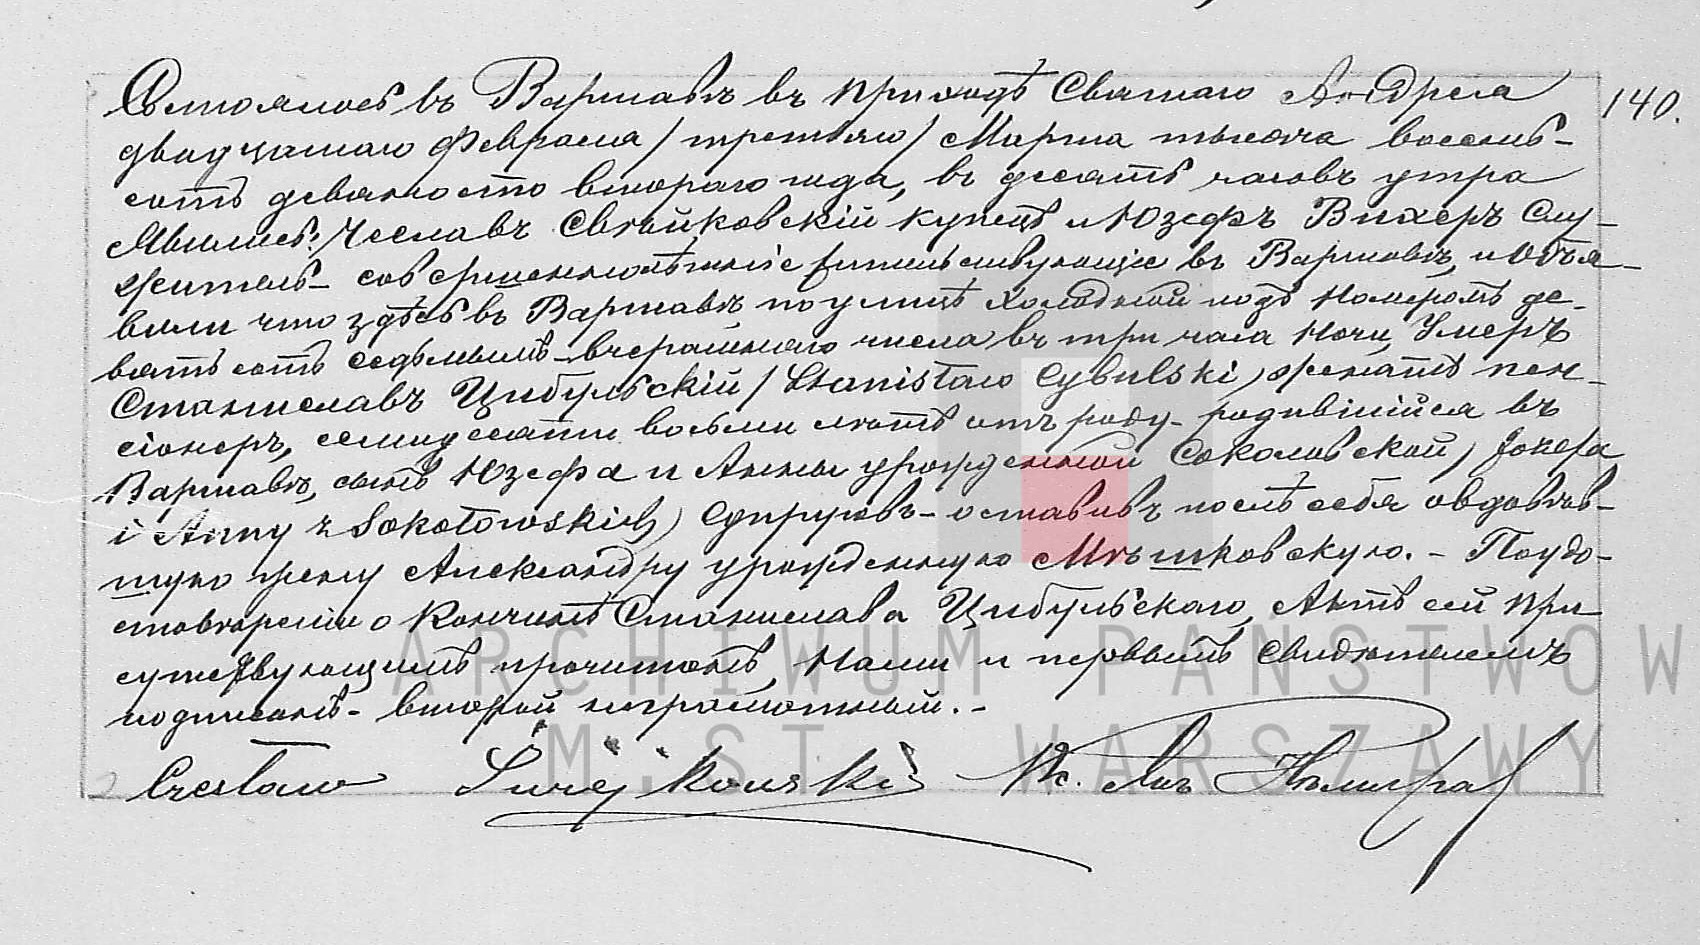 Состоялось въ Варшавѣ въ приходѣ Святаго Андрея
140.
двадцатаго Февраля / третьяго / Марта тысяча восемь-
сотъ девяносто втораго года, въ десять часовъ утра
Явились: Чеславъ Свѣйковскій купецъ и Юзефъ Вихеръ слу-
житель - совершеннолѣтніе жительствующіе въ Варшавѣ, и объя-
вили что здѣсь въ Варшавѣ по улицѣ Холодной подъ номеромъ де-
вятьсотъ седьмымъ - вчерашняго числа въ три часа ночи, умеръ
Станиславъ Цибульскій / Stanisław Cybulski / женатъ пен-
сіонеръ, семидесяти восьми лѣтъ отъ роду - родившійся въ
Варшавѣ, сынъ Юзефа и Анны урожденной Соколовской / Józefa
i Anny z Sokołowskich / супруговъ - оставивъ послѣ себя овдовѣв-
шую жену Александру урожденную Мѣшковскую. - По удо-
стовѣреніи о кончинѣ Станислава Цибульскаго, Актъ сей при-
сутствующимъ прочитанъ, Нами и первымъ свидѣтелемъ
подписанъ - второй неграмотный. -
Czesław Świejkowski Кс. Янъ
ARCHIWUM PAŃSTWOW
M.ST. WARSZAWY